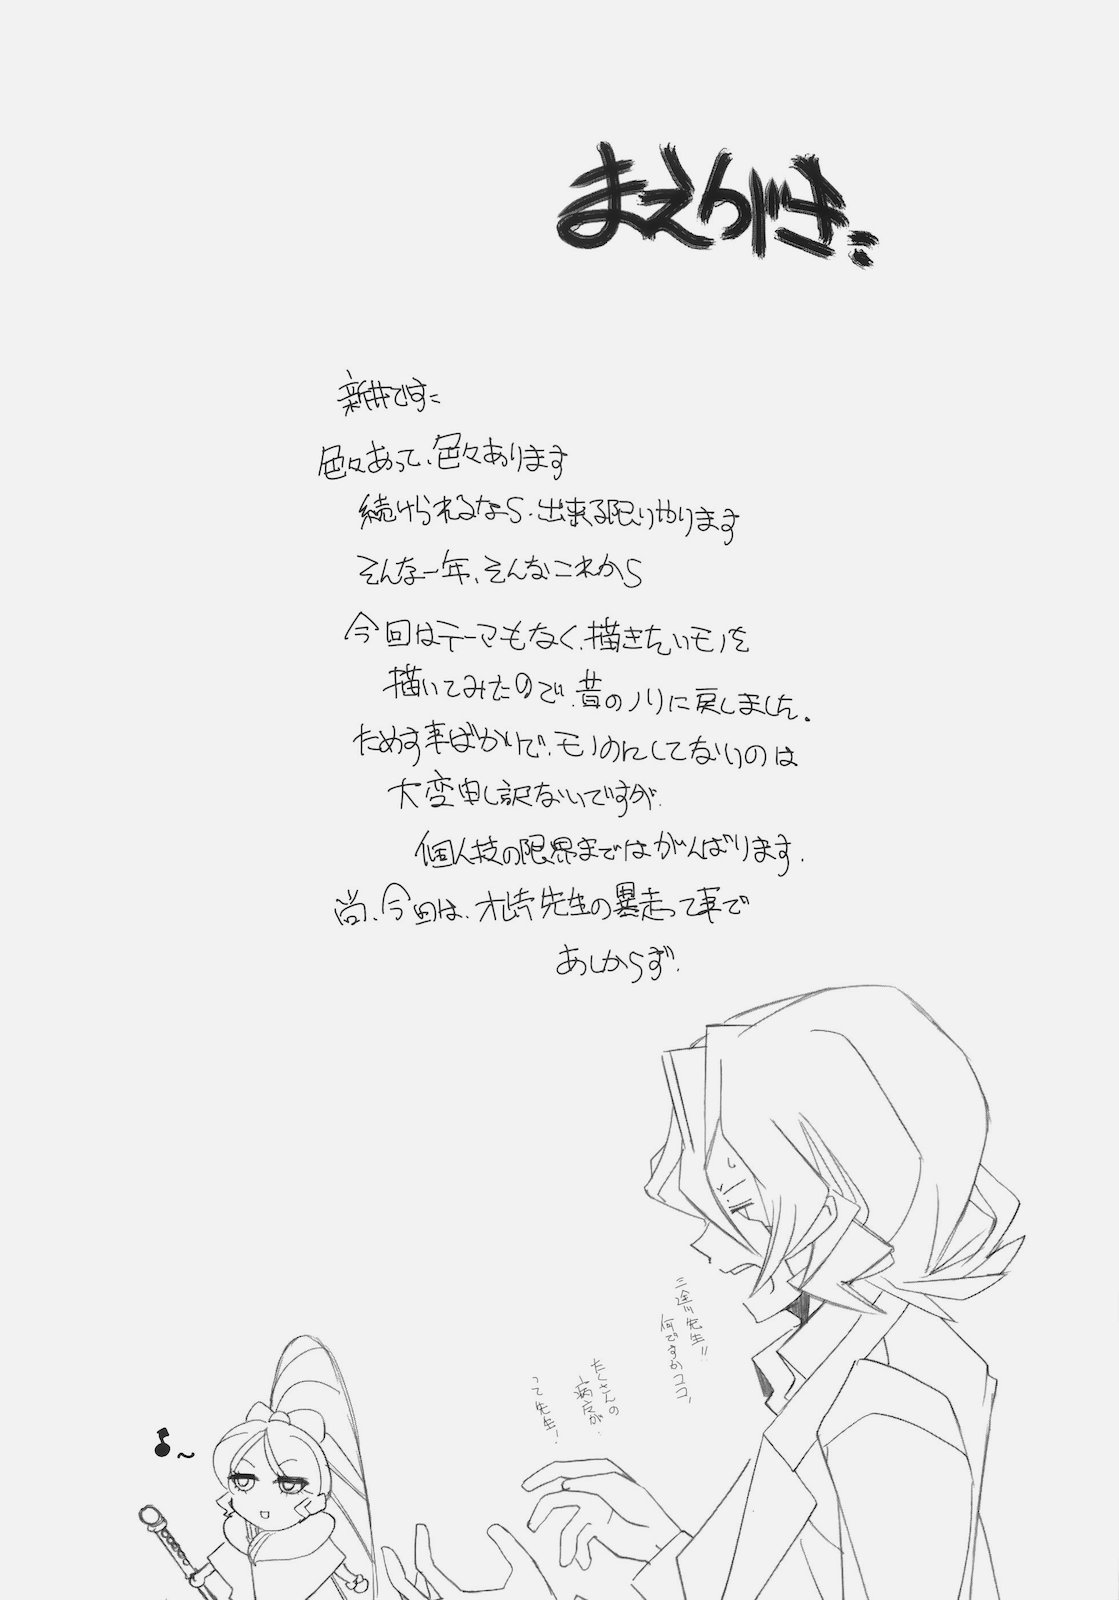 まえがき
新井です
色々あって、色々あります
続けられるなら、出来る限りやります
そんな一年、そんなこれから
今回はテーマもなく、描きたいモノを
描いてみたので、昔のノリに戻しました。
ためす事ばかりで、モノにしてないのは
大変申し訳ないですが、
個人技の限界まではがんばります。
尚、今回は、先生の暴走って事で
あしからず。
三途川先生!!
何ですかココ、
たくさんの
病友が、
って先生!